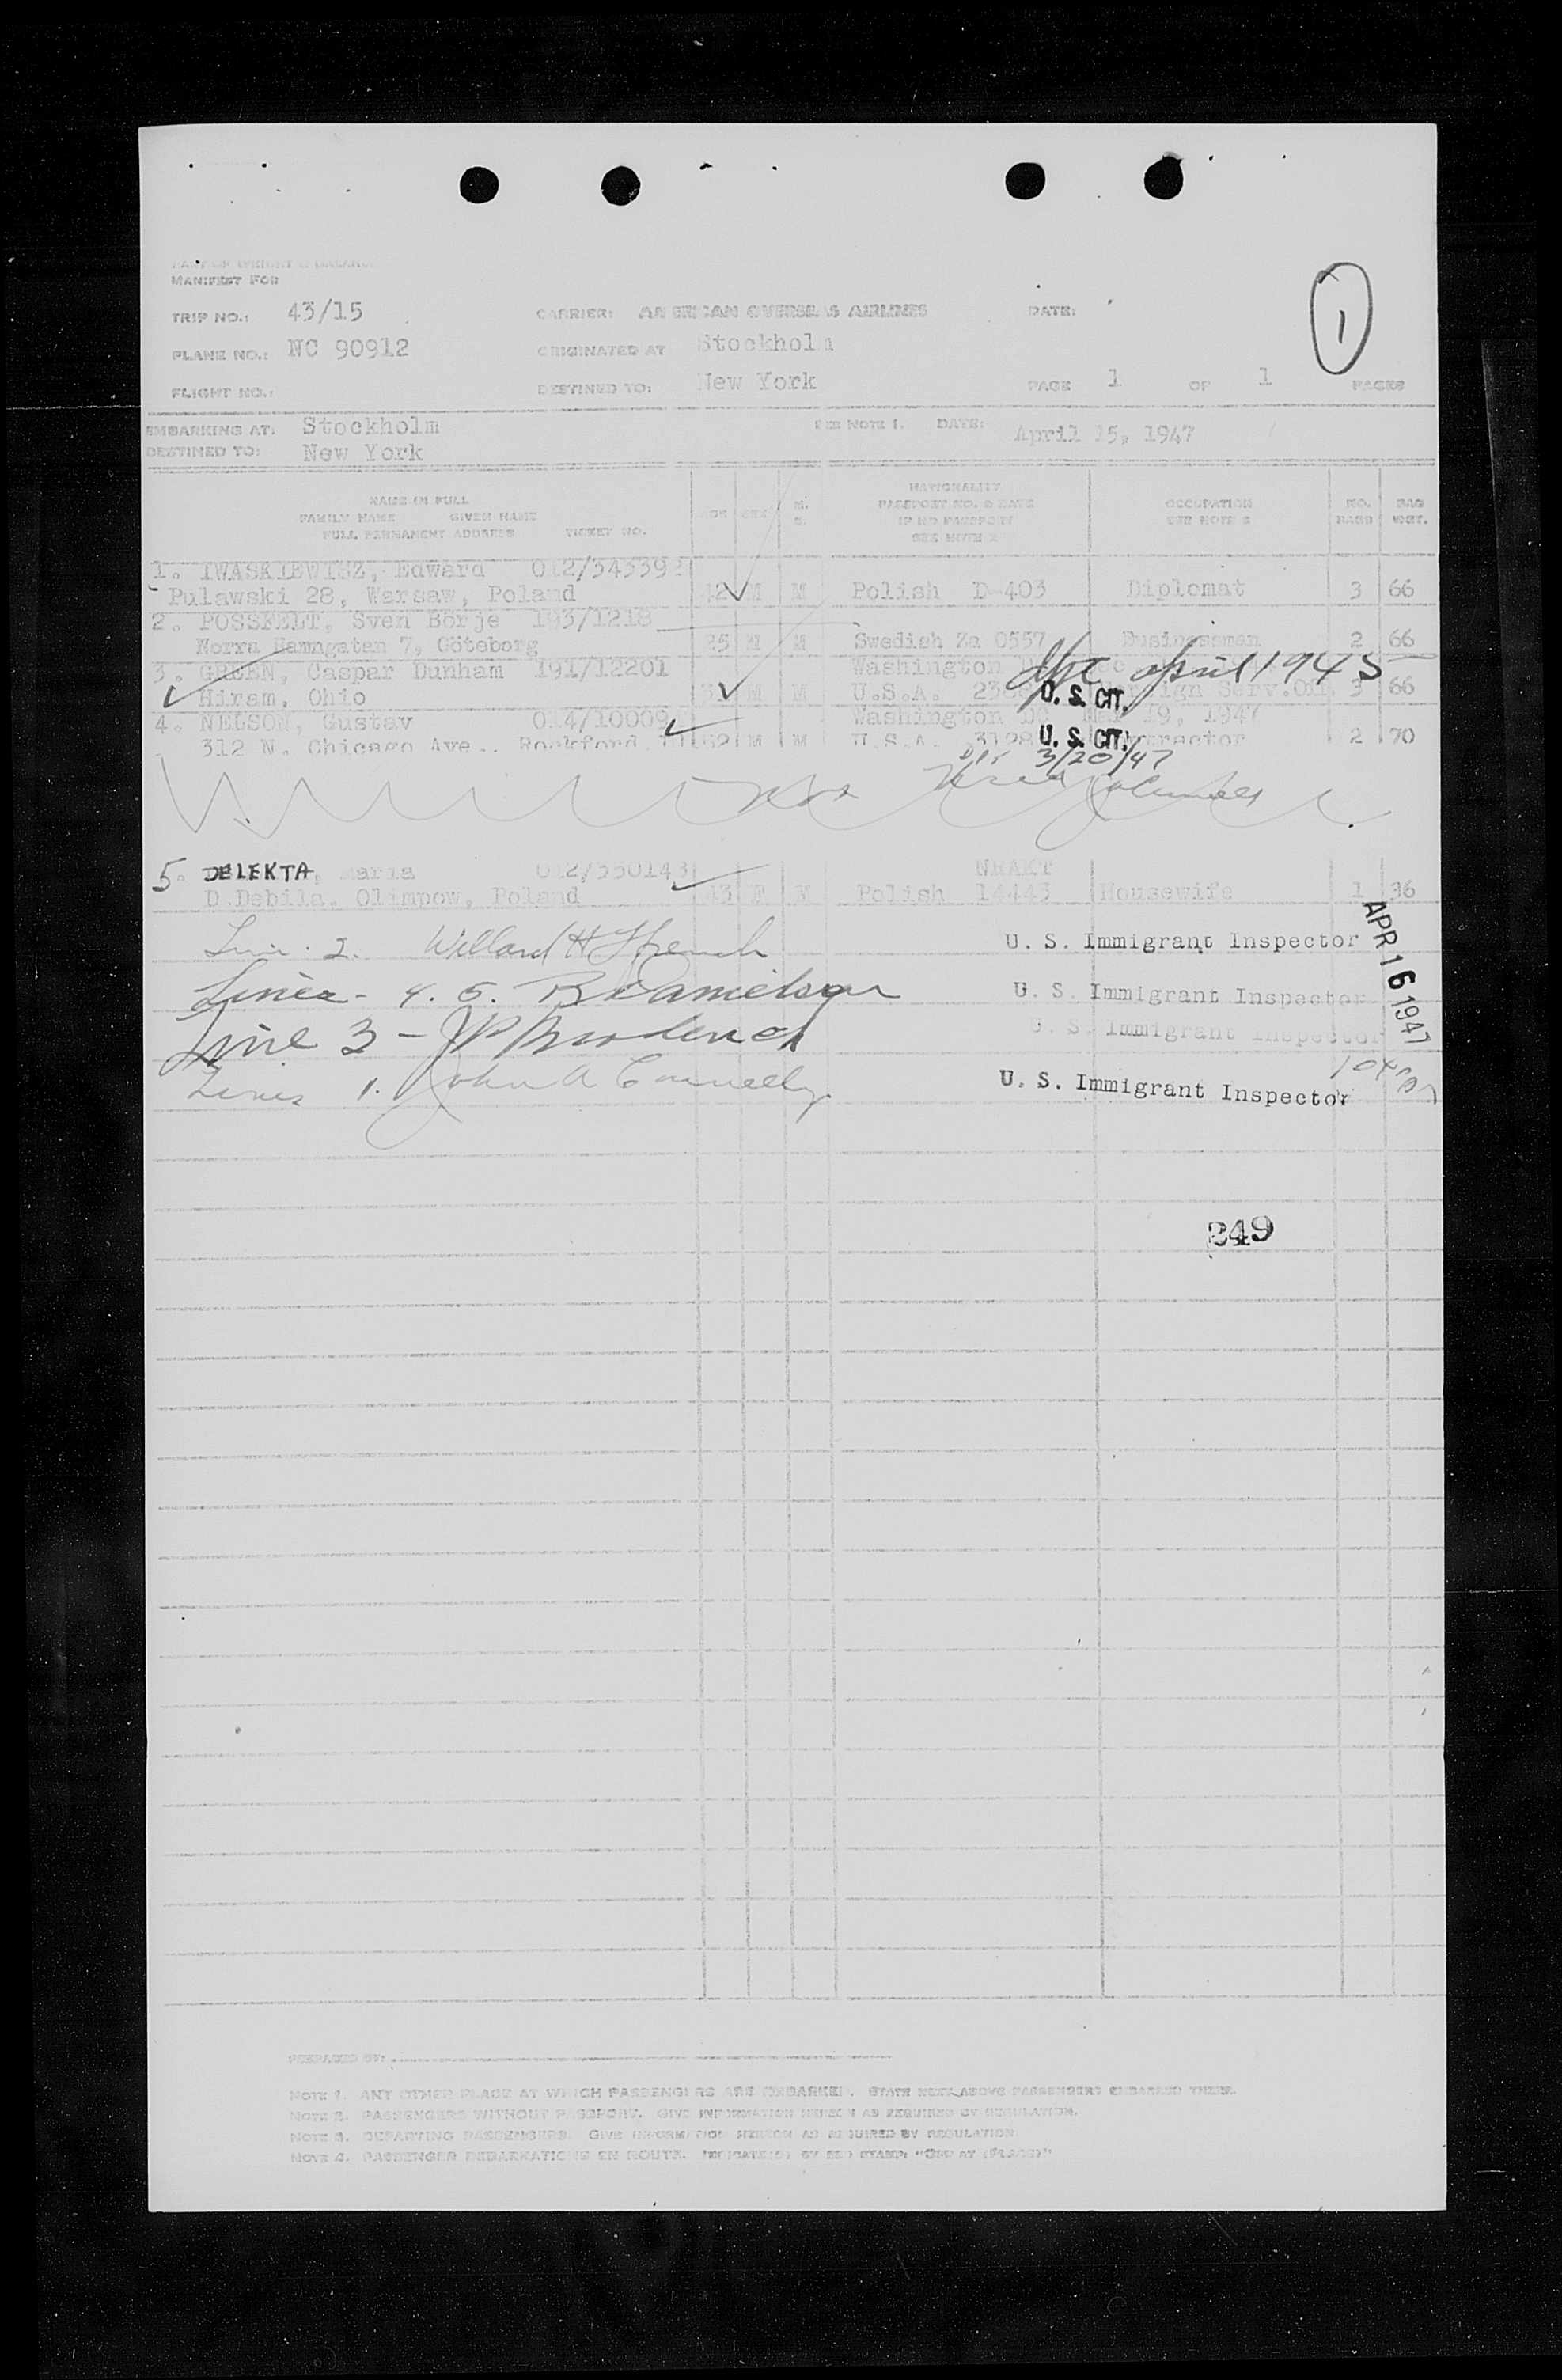 MANIFEST FOR
TRIP NO.: 43/15 CARRIER: AMERICAN OVERSEAS AIRLINES DATE: 1
PLANE NO.: NC 90912 ORIGINATED AT Stockholm
FLIGHT NO.: DESTINED TO: New York PAGE 1 OF 1 PAGES
EMBARKING AT: Stockholm SEE NOTE 1. DATE: April 15, 1947
DESTINED TO: New York
NAME IN FULL NATIONALITY
FAMILY NAME GIVEN NAME AGE SEX M. PASSPORT NO. & DATE OCCUPATION NO. BAG
FULL PERMANENT ADDRESS TICKET NO. S. IF NO PASSPORT SEE NOTE 3 BAGS WGT.
SEE NOTE 2
1. IWASKIEWISZ, Edward 012/343392
Pulawski 28, Warsaw, Poland 42 M M Polish D-403 Diplomat 3 66
2. POSSFELT, Sven Börje 193/1218
Norra Hamngatan 7, Göteborg 35 M M Swedish Za 0557 Businessman 2 66
3. GREEN, Caspar Dunham 191/12201 Washington april 1945
Hiram, Ohio M M U.S.A. U. S. CIT. Foreign Serv. 3 66
4. NELSON, Gustav 014/10009 Washington 19, 1947
312 N. Chicago Ave., Rockford 62 M M U.S.A. U. S. CIT. Contractor 2 70
3/20/47
5. DELEKTA, Maria 012/330143
D.Debila, Olimpow, Poland 43 F M Polish 14443 Housewife 1 36
Line 2. Willard H French U. S. Immigrant Inspector APR 16 1947
Lines - 4. 5. U. S. Immigrant Inspector
Line 3 - J P Broderick U. S. Immigrant Inspector
Lines 1. John A Connelly U. S. Immigrant Inspector
249
PREPARED BY:
NOTE 1. ANY OTHER PLACE AT WHICH PASSENGERS ARE EMBARKED. STATE NEXT ABOVE PASSENGERS EMBARKED THERE.
NOTE 2. PASSENGERS WITHOUT PASSPORT. GIVE INFORMATION HEREON AS REQUIRED BY REGULATION.
NOTE 3. DEPARTING PASSENGERS. GIVE INFORMATION HEREON AS REQUIRED BY REGULATION.
NOTE 4. PASSENGER DEBARKATIONS EN ROUTE. INDICATE(D) BY RED STAMP: "OFF AT (PLACE)"